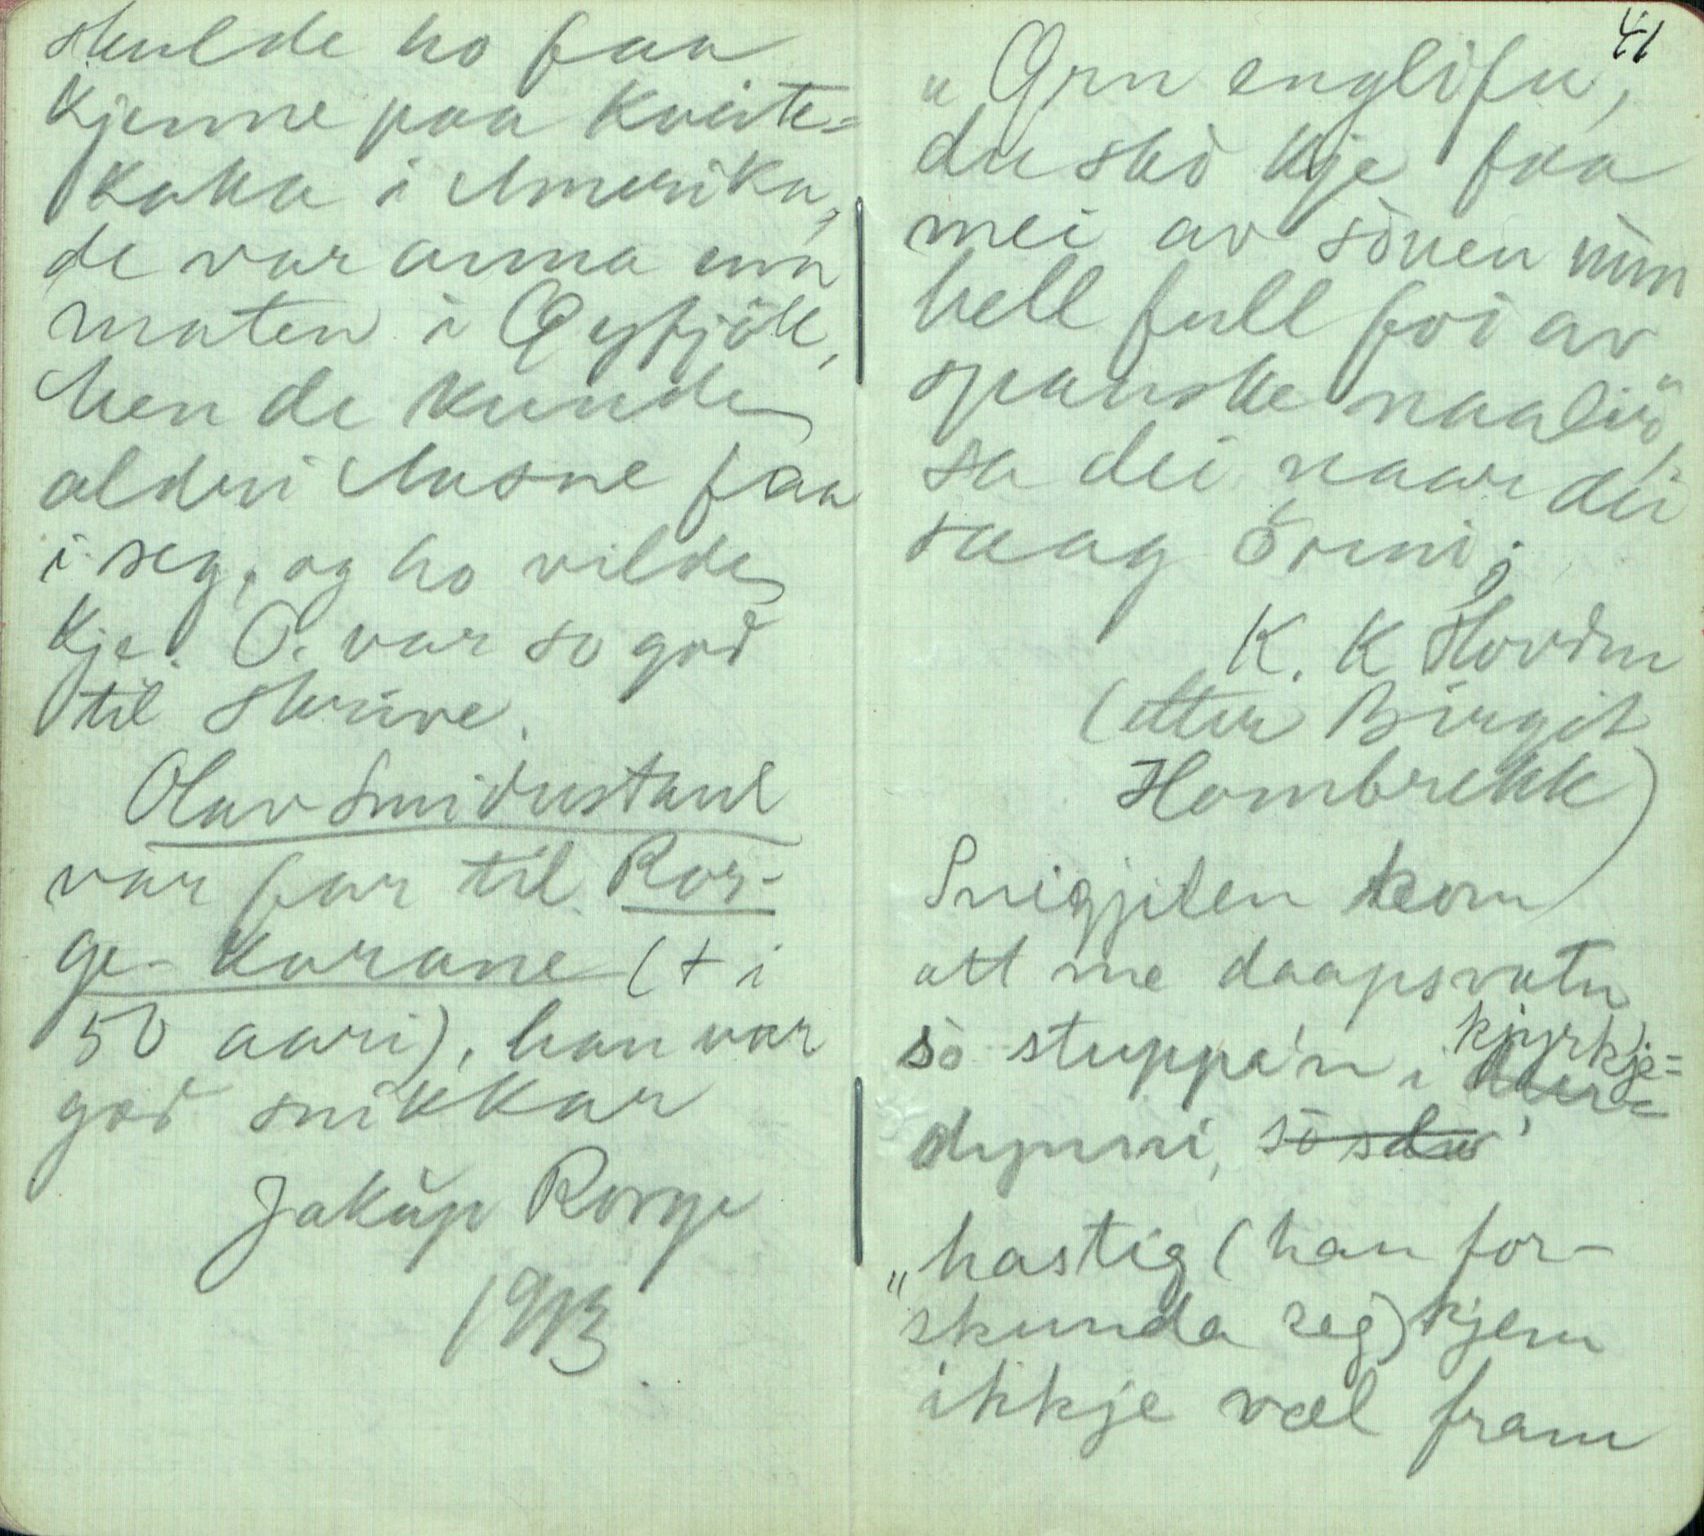 skulde ho faa
kjenne paa kveite-
kaka i Amerika,
de var anna enn
maten i Øyfjöll,
hen de kunde
aldri Aasne faa
i seg, og ho vilde
kje. O. var so god
til skrive.
Olav Smidustaul
var far til Ror-
ge-karane (+ i
50 aari), han var
god snikkar
Jakup Rorge
1913.
41
"Orm englifu,
du sko kje faa
mei av sòven min
hell full foi av
spanske naaliö"
sa dei naar dei
saag òrmi;
K. K Hovden
(etter Birgit
Hombrekk)
Snigjilen kom
att me daapsvatn
sò stuppa'n i kjyrkje-
dynni, sò sdu
"hastig (han for-
skunda seg) kjem
ikkje væl fram